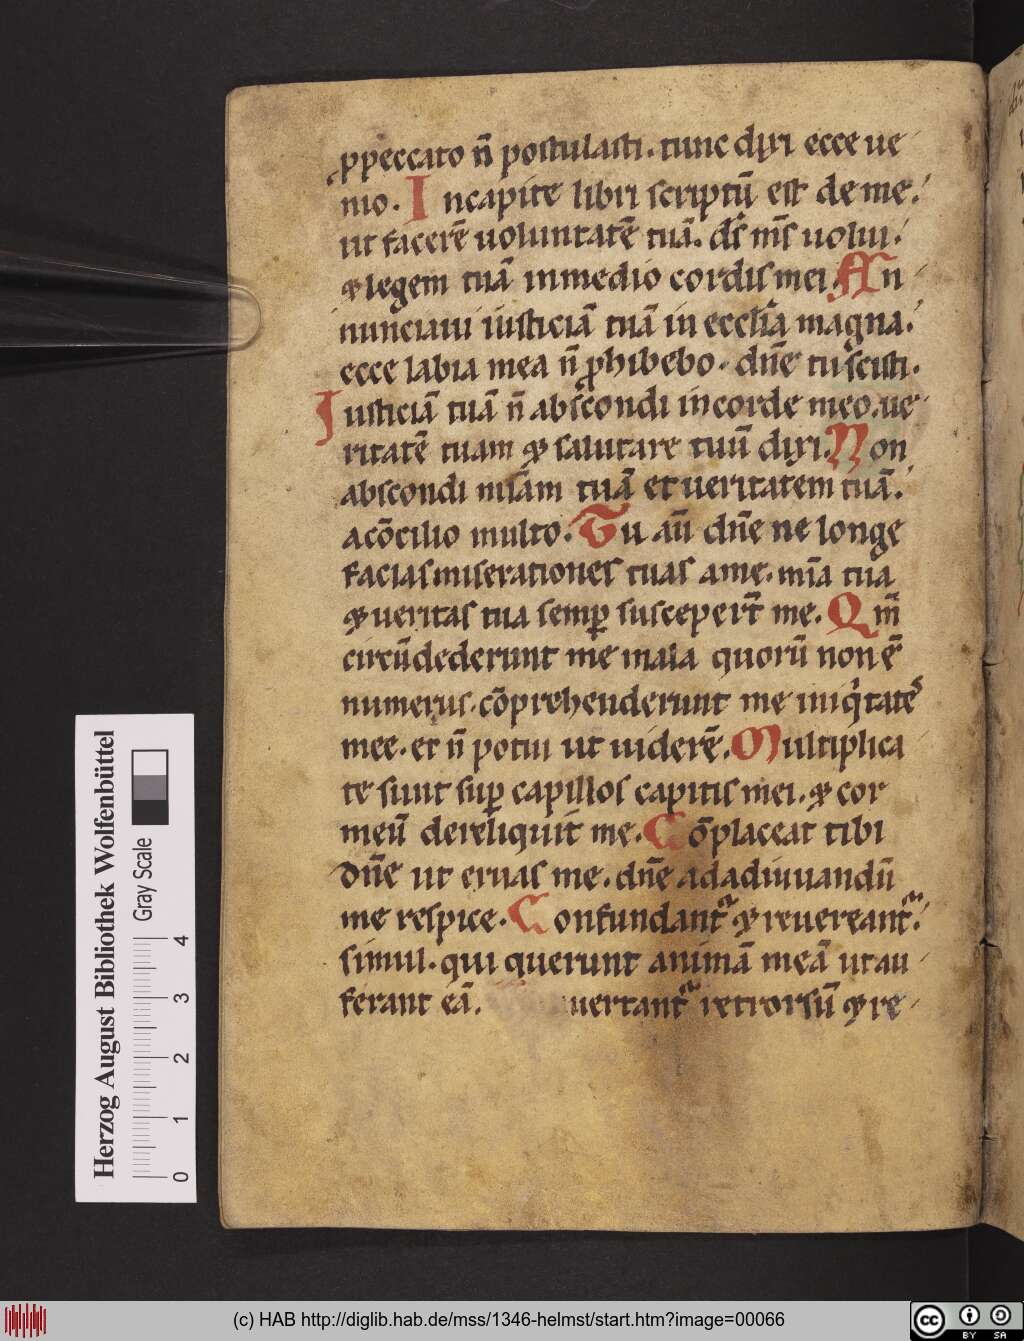 ꝓpeccato n̄ postulasti. tunc dixi ecce ue
nio. Incapite libri scriptū est de me.
ut facerē uoluntatē tuā. ds̄ ms̄ uolui.
⁊ legem tuā inmedio cordis mei. An
nunciaui iusticiā tuā in ecclīa magna.
ecce labia mea n̄ ꝓhibebo. dn̄e tu scisti.
Iusticiā tuā n̄ abscondi in corde meo. ue
ritatē tuam ⁊ salutare tuū dixi. Non
abscondi mīam tuā et ueritatem tuā.
acōcilio multo. Tu aū dn̄e ne longe
facias miserationes tuas ame. mīa tua
⁊ ueritas tua semꝑ suscepert̄ me. Qm̄
circūdederunt me mala quorū non ē
numerus. cōprehenderunt me iniqͥtates
mee. et n̄ potui ut uiderē. Multiplica
te sunt suꝑ capillos capitis mei. ⁊ cor
meū dereliquit me. Cōplaceat tibi
dn̄e ut eruas me. dn̄e ad adiuuandū
me respice. Confundant᷑ ⁊ reuereant᷑.
simul. qui querunt animā meā ut au
ferant eā. uertant᷑ retrorsū ⁊ re
Herzog August Bibliothek Wolfenbüttel
Gray Scale
0 1 2 3 4
(c) HAB http://diglib.hab.de/mss/1346-helmst/start.htm?image=00066
cc BY SA